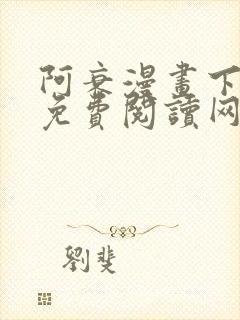 阿衰漫畫下
免費閱讀网
劉斐